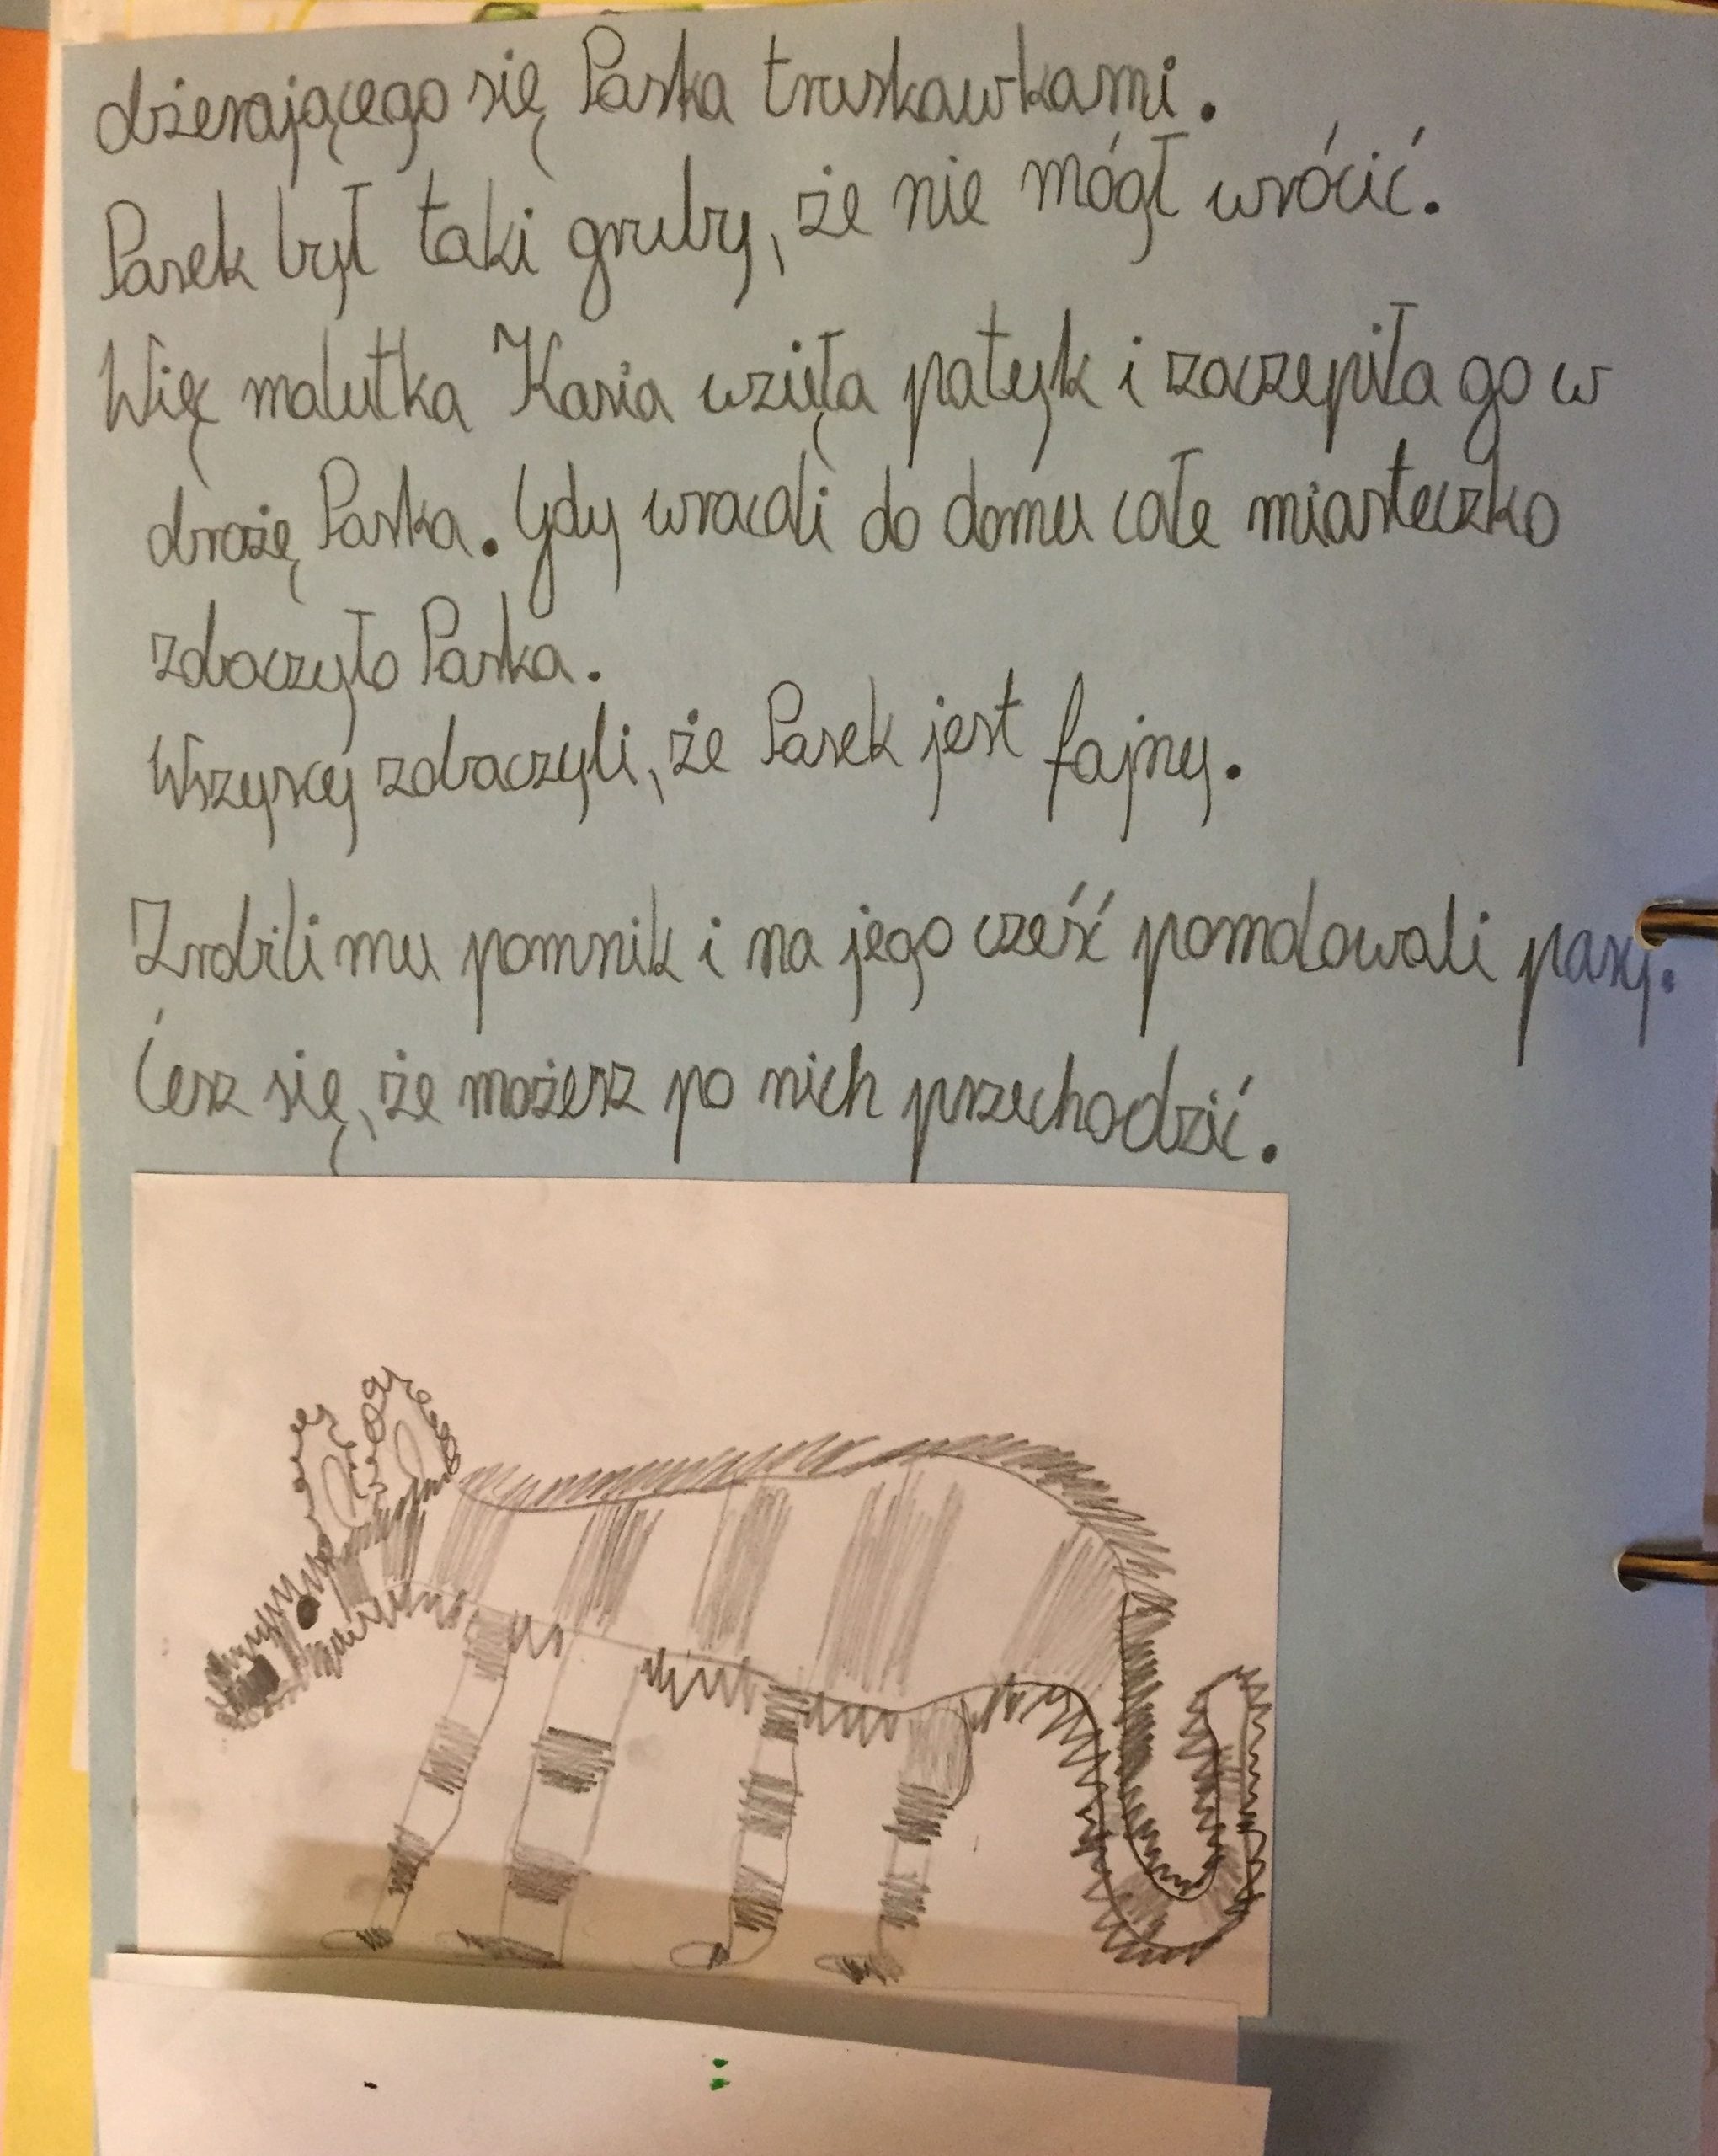 dżerającego się Paska truskawkami.
Pasek był taki gruby, że nie mógł wrócić.
Wię malutka Kasia wzięła patyk i zaczepiła go w
drożę Paska. Gdy wracali do domu całe miasteczko
zobaczyło Paska.
Wszyscy zobaczyli, że Pasek jest fajny.
Zrobili mu pomnik i na jego cześć pomalowali pasy.
Ciesz się, że możesz po nich przechodzić.